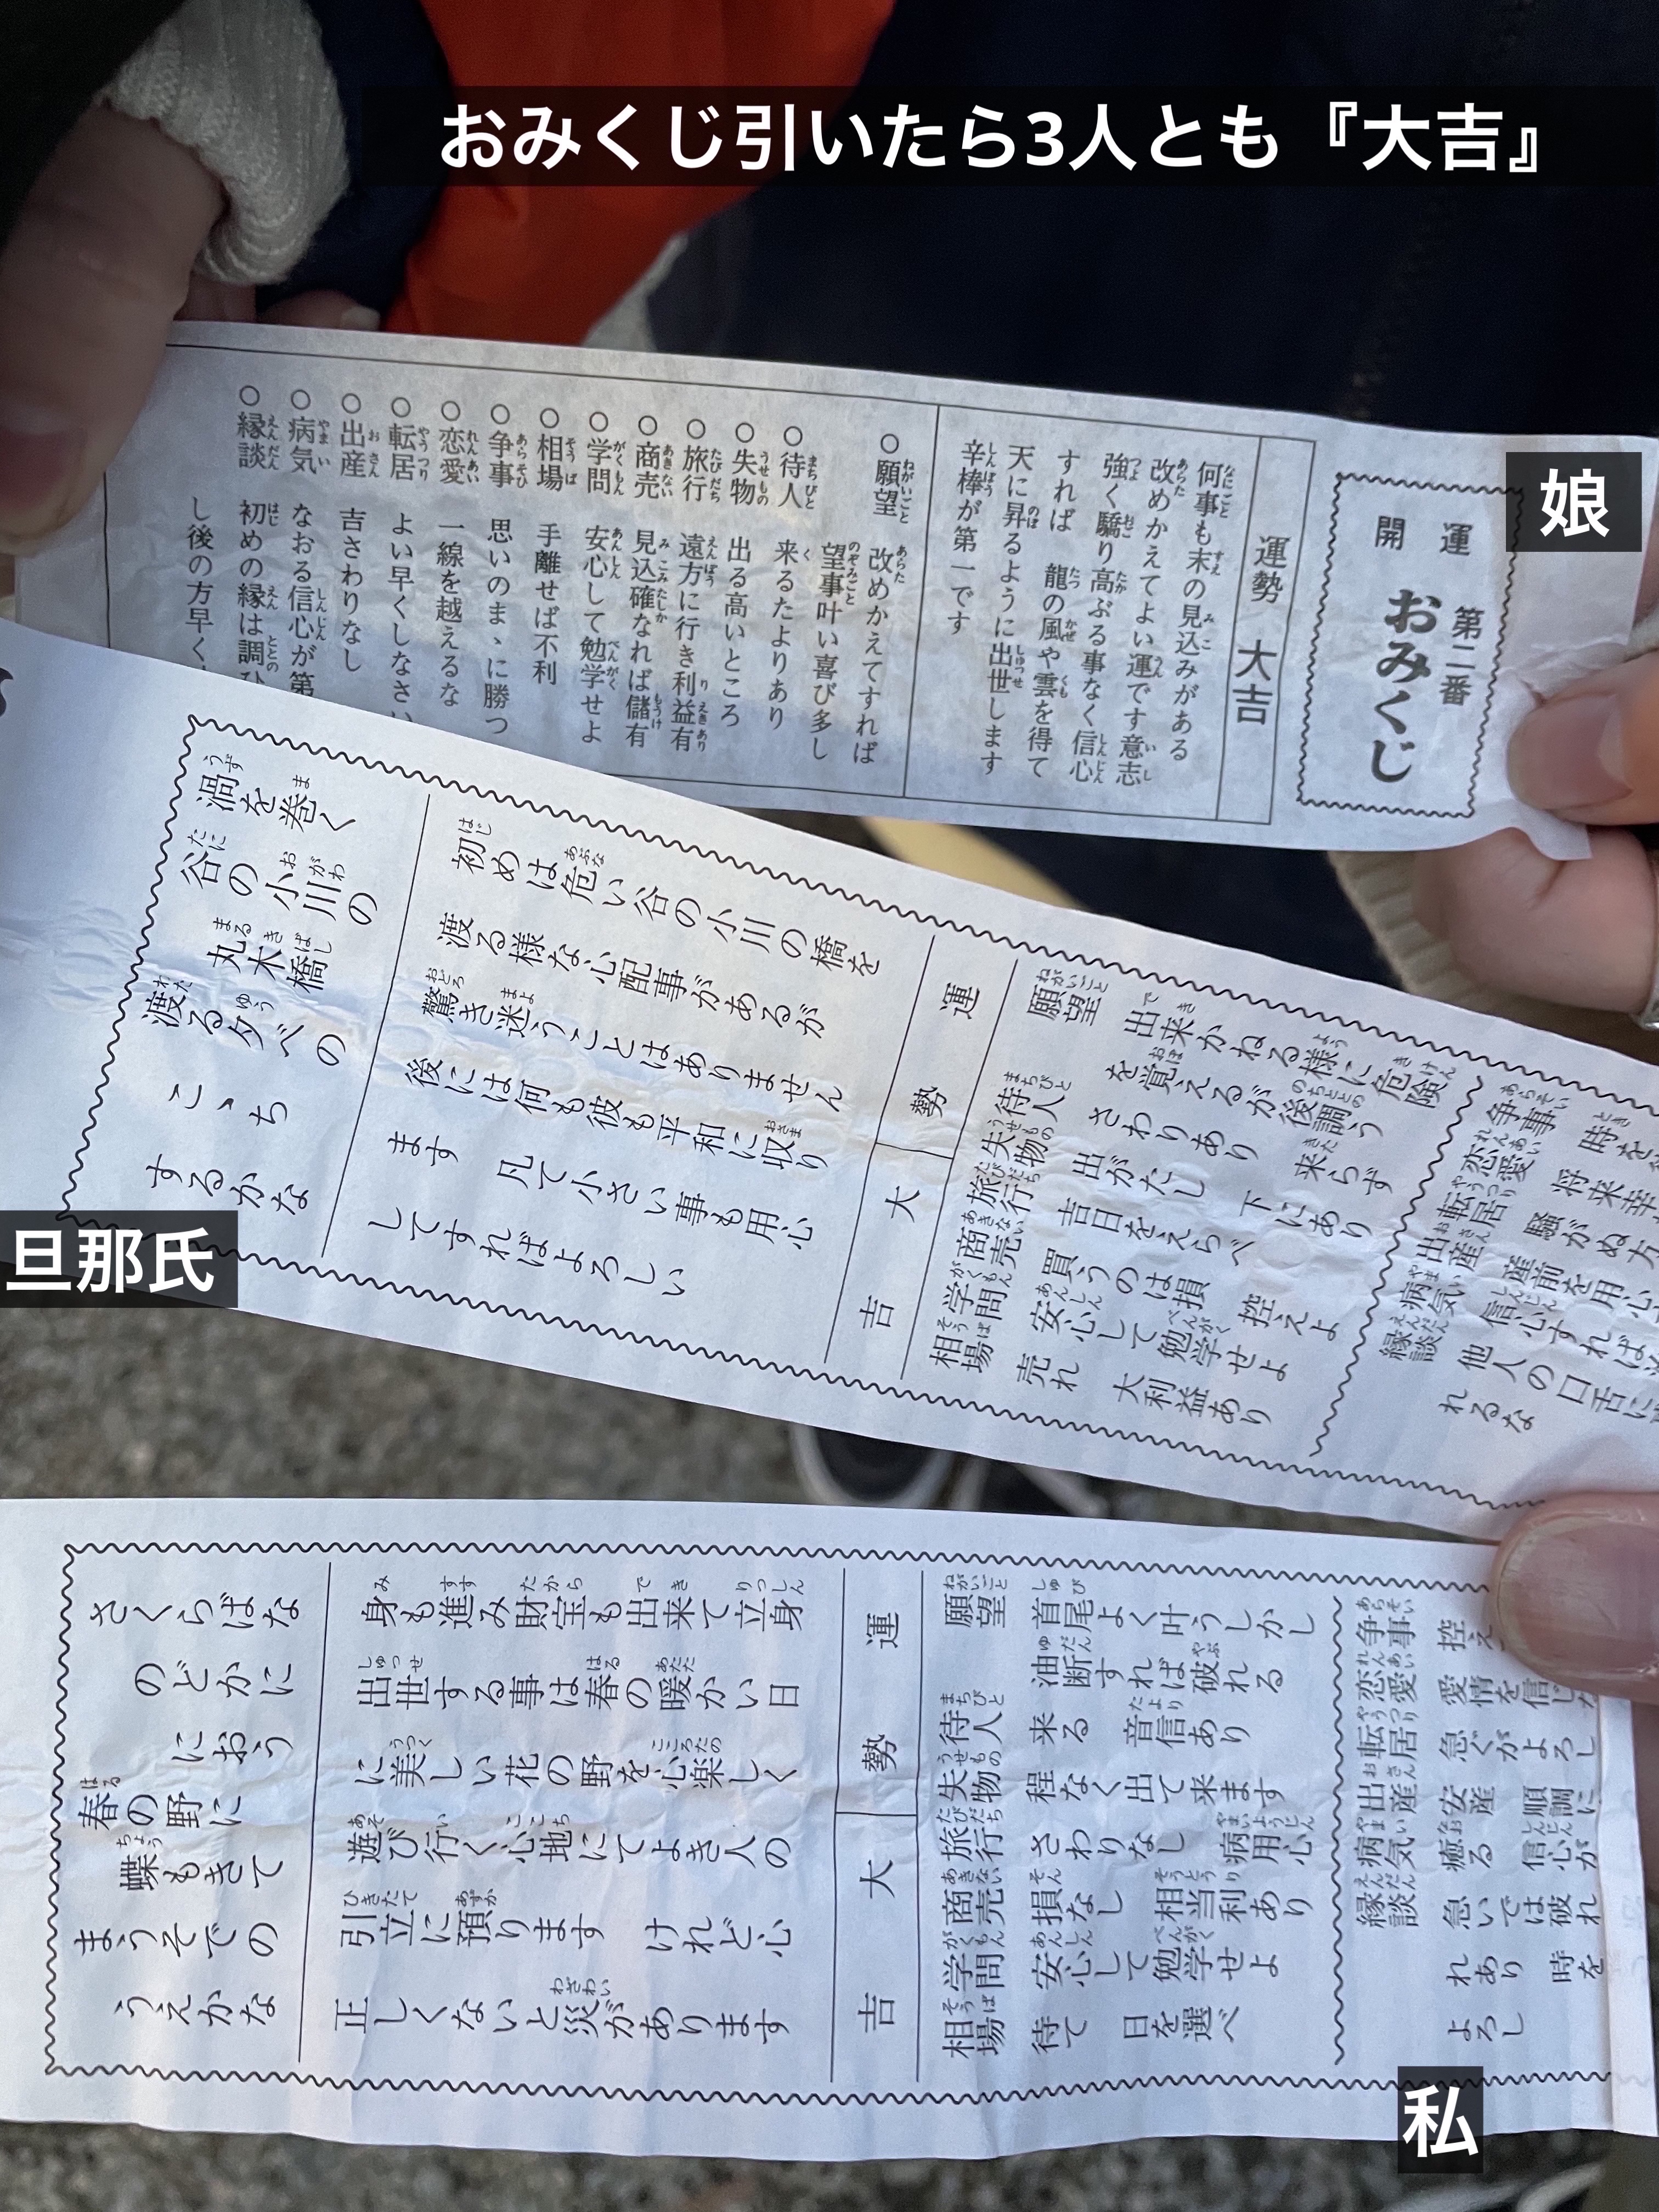 おみくじ引いたら3人とも『大吉』
娘
開運
第二番
おみくじ
運勢 大吉
何事も末の見込みがある
改めかえてよい運です意志
強く驕り高ぶる事なく信心
すれば 龍の風や雲を得て
天に昇るように出世します
辛棒が第一です
○願望 改めかえてすれば
望事叶い喜び多し
○待人 来るたよりあり
○失物 出る高いところ
○旅行 遠方に行き利益有
○商売 見込確なれば儲有
○学問 安心して勉学せよ
○相場 手離せば不利
○争事 思いのまゝに勝つ
○恋愛 一線を越えるな
○転居 よい早くしなさい
○出産 吉さわりなし
○病気 なおる信心が第
○縁談 初めの縁は調ひ
し後の方早く
旦那氏
渦を巻く
谷の小川の
丸木橋
渡る夕べの
こゝち
するかな
初めは危い谷の小川の橋を
渡る様な心配事があるが
驚き迷うことはありません
後には何も彼も平和に収り
ます 凡て小さい事も用心
してすればよろしい
運勢 大吉
願望 出来かねる様に危険
を覚えるが後調う
待人 さわりあり 来らず
失物 出がたし 下にあり
旅行 吉日をえらべ
商売 買うのは損 控えよ
学問 安心して勉学せよ
相場 売れ 大利益あり
争事 時を
恋愛 将来幸
転居 騒がぬ方
出産 産前を用心
病気 信心すれば
縁談 他人の口舌に
れるな
私
さくらばな
のどかに
におう
春の野に
蝶もきて
まうそでの
うえかな
身も進み財宝も出来て立身
出世する事は春の暖かい日
に美しい花の野を心楽しく
遊び行く心地にてよき人の
引立に預ります けれど心
正しくないと災があります
運勢 大吉
願望 首尾よく叶うしかし
油断すれば破れる
待人 来る 音信あり
失物 程なく出て来ます
旅行 さわりなし 病用心
商売 損なし 相当利あり
学問 安心して勉学せよ
相場 待て 日を選べ
争事 控え
恋愛 愛情を信じ
転居 急ぐがよろし
出産 安産 順調に
病気 癒る 信心が
縁談 急いでは破れ
れあり 時を
よろし